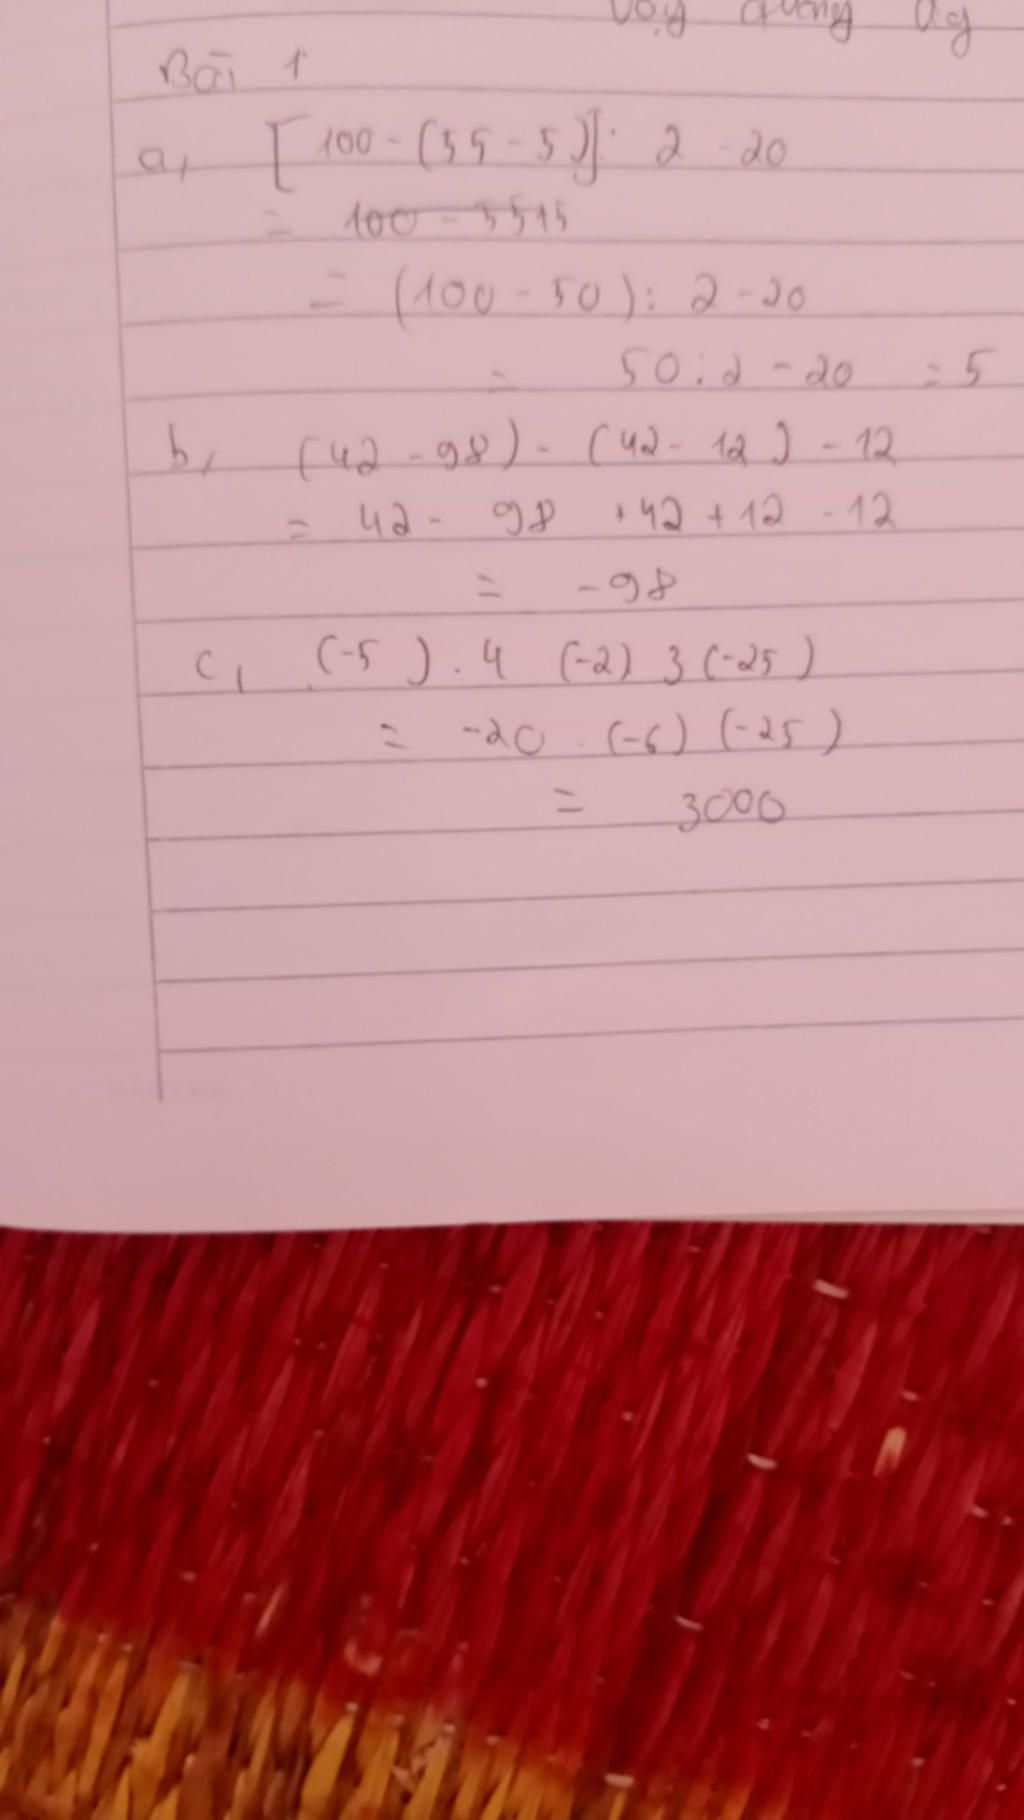 Bài 1
a, [100 - (55 - 5)] : 2 - 20
= 100 - 5515
= (100 - 50) : 2 - 20
= 50 : 2 - 20 = 5
b, (42 - 98) - (42 - 12) - 12
= 42 - 98 + 42 + 12 - 12
= -98
c, (-5) . 4 (-2) 3 (-25)
= -20 . (-6) (-25)
= 3000